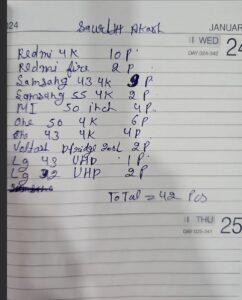 24
JANUAR
WED
DAY 024-342
24
Saurabh Akash
Redmi 4K 10 P
Redmi fire 2 P
Samsang 43 4K 9 P
Samsang 55 4K 2 P
MI 50 inch 4 P
One 50 4K 6 P
One 43 4K 4 P
Voltash Dfridge 2P
Lg 43 UHD 1 P
Lg 32 UHD 2 P
ToTal = 42 Pcs
THU
DAY 025-341
25